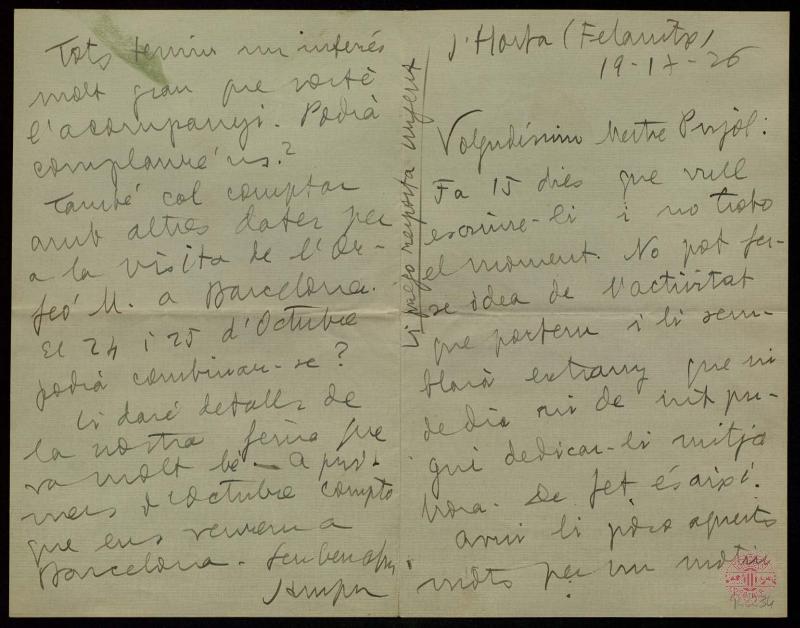 S'Horta (Felanitx)
19-IX-26
Volgudíssim Mestre Pujol:
Fa 15 dies que vull
escriure-li i no trobo
el moment. No pot fer-
se idea de l'activitat
que portem i li sem-
blarà extrany que ni
de dia ni de nit pu-
gui dedicar-li mitja
hora. De fet és així.
Avui li poso aquests
mots per un motiu
Tots tenim un interés
molt gran que vostè
l'acompanyi. Podrà
complaure'ns?
També cal comptar
amb altres dates per
a la visita de l'Or-
feó M. a Barcelona.
El 24 i 25 d'Octubre
podrà combinar-se?
Li daré detalls de
la nostra feina que
va molt bé - A pri-
mers d'Octubre compto
que ens veurem a
Barcelona -
Li prego resposta urgent